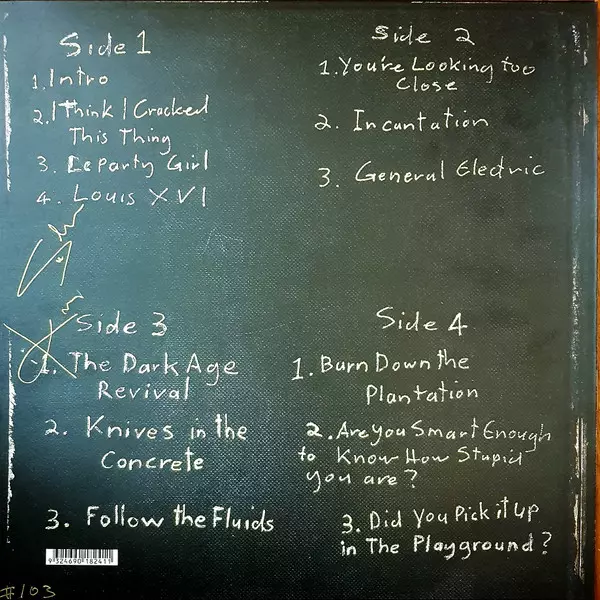 Side 1
1. Intro
2. I Think I Cracked
This Thing
3. Le Party Girl
4. Louis XVI
Side 2
1. You're Looking too
Close
2. Incantation
3. General Electric
Side 3
1. The Dark Age
Revival
2. Knives in the
Concrete
3. Follow the Fluids
Side 4
1. Burn Down the
Plantation
2. Are you Smart Enough
to Know How Stupid
you are?
3. Did You Pick it up
in The Playground?
9324690182411
#103